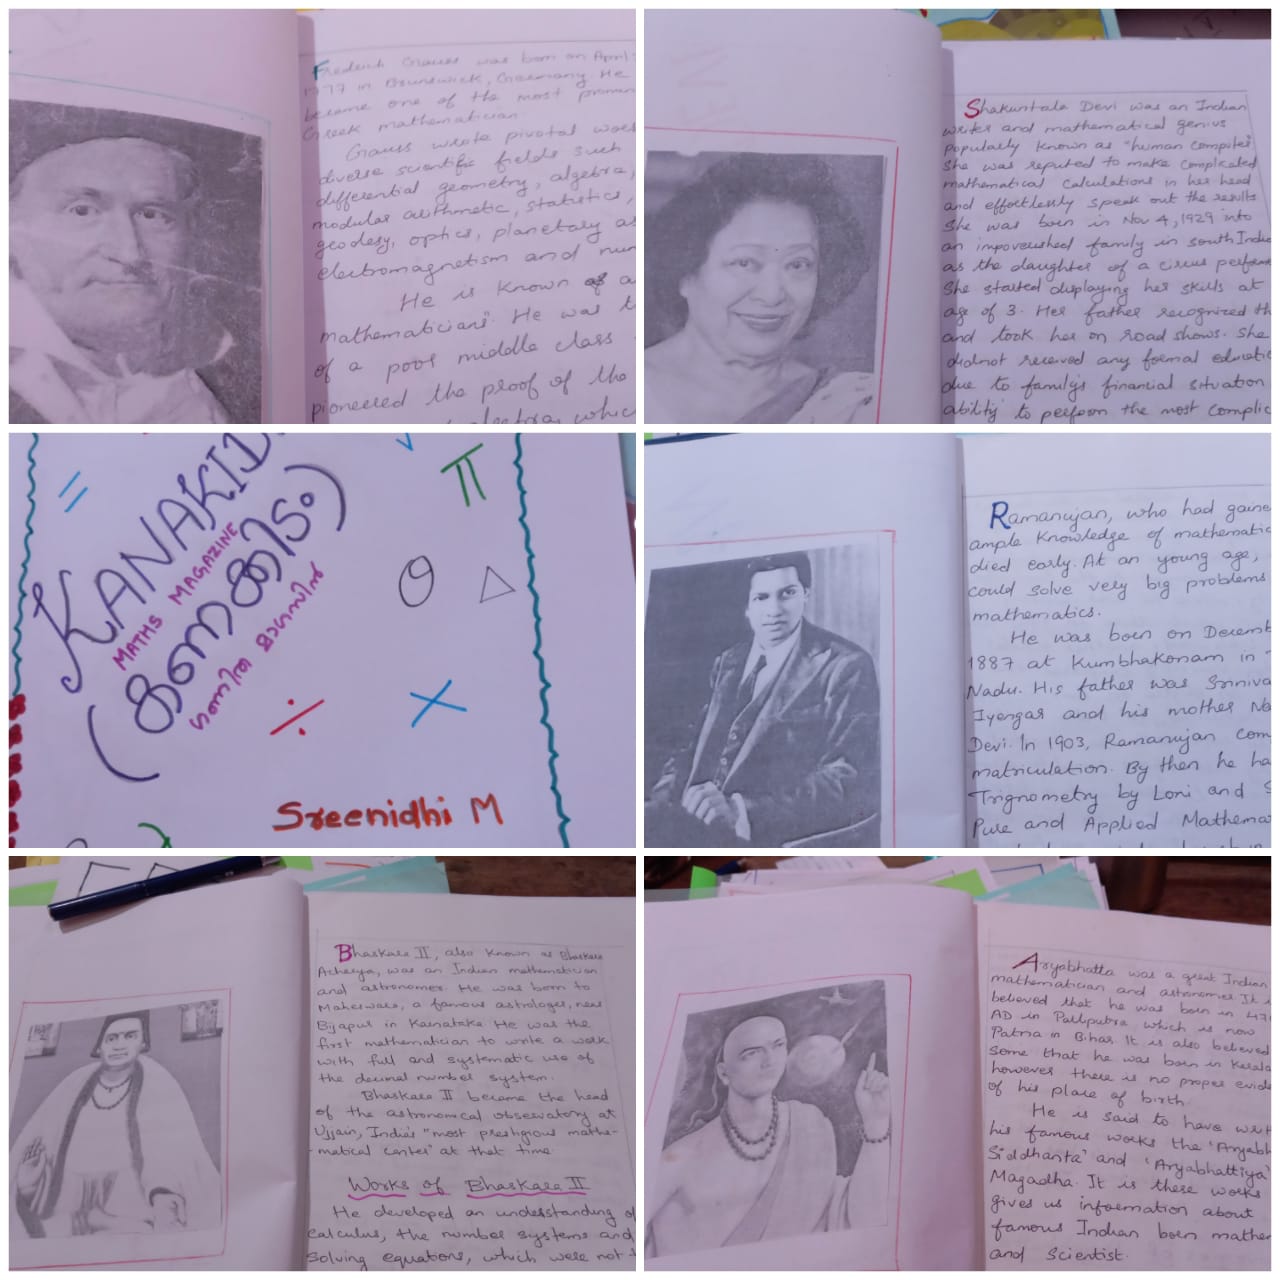 Frederich Gauss was born on April
1777 in Brunswick, Germany. He
became one of the most promin
Greek mathematician.
Gauss wrote pivotal woe
diverse scientific fields such
differential geometry, algebra,
modular arithmetic, statistics,
geodesy, optics, planetary as
electromagnetism and num
He is known as a
mathematicians". He was t
of a poor middle class
pioneered the proof of the
whic
Shakuntala Devi was an Indian
writer and mathematical genius
popularly known as "human computer"
She was reputed to make complicated
mathematical calculations in her head
and effortlessly speak out the results
She was born in Nov 4, 1929 into
an impoverished family in south India
as the daughter of a circus perform
She started displaying her skills at
age of 3. Her father recognized th
and took her on road shows. She
didnot received any formal educatio
due to family's financial situation
ability to perform the most complic
KANAKID
MATHS MAGAZINE
(കണക്കിടം)
ഗണിത മാഗസിൻ
=
π
Θ △
÷ ×
Sreenidhi M
Ramanujan, who had gaine
ample knowledge of mathematic
died early. At an young age,
could solve very big problems
mathematics.
He was born on Decemb
1887 at Kumbhakonam in
Nadu. His father was Sriniva
Iyengar and his mother
Devi. In 1903, Ramanujan com
matriculation. By then he ha
Trignometry by Loni and S
Pure and Applied Mathema
Bhaskara II, also known as Bhaskara
Acharya, was an Indian mathematician
and astronomer. He was born to
Maheswara, a famous astrologer, near
Bijapur in Karnataka. He was the
first mathematician to write a work
with full and systematic use of
the decimal number system.
Bhaskara II became the head
of the astronomical observatory at
Ujjain, India's "most prestigious mathe-
-matical center" at that time.
Works of Bhaskara II
He developed an understanding of
calculus, the number systems and
solving equations, which were not
Aryabhatta was a great Indian
mathematician and astronomer. It i
believed that he was born in 47
AD in Palliputra which is now
Patna in Bihar. It is also believed
some that he was born in Kerala
however there is no proper evide
of his place of birth.
He is said to have writ
his famous works the 'Aryabh
Siddhanta' and 'Aryabhattiya'
Magadha. It is these works
gives us information about
famous Indian born mathe
and scientist.